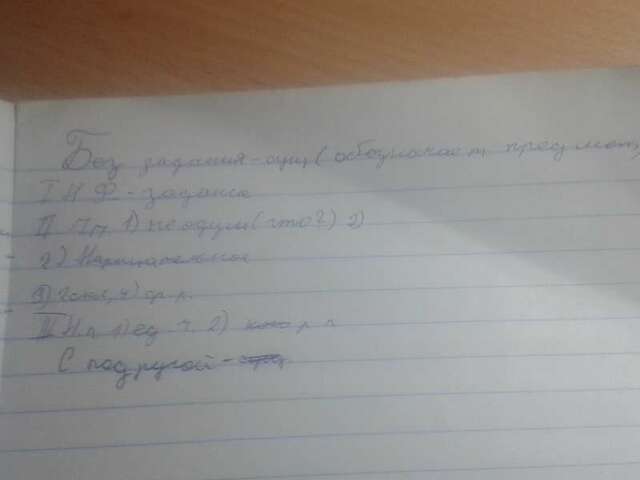 Без задания - сущ (обозначает предмет,
I Н Ф - задание
II Пп 1) неодуш (что?) 2)
2) Нарицательное
3) 2скл, 4) ср.р.
III Н.п ед ч. 2) р п
С подругой - сущ